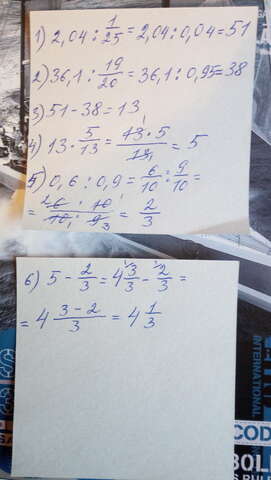 1) 2,04 : 1/25 = 2,04 : 0,04 = 51
2) 36,1 : 19/20 = 36,1 : 0,95 = 38
3) 51 - 38 = 13
4) 13 · 5/13 = 13 · 5/13 = 5
5) 0,6 : 0,9 = 6/10 : 9/10 =
= 6 · 10/10 · 9 = 2/3
6) 5 - 2/3 = 4 3/3 - 2/3 =
= 4 3 - 2/3 = 4 1/3
COD